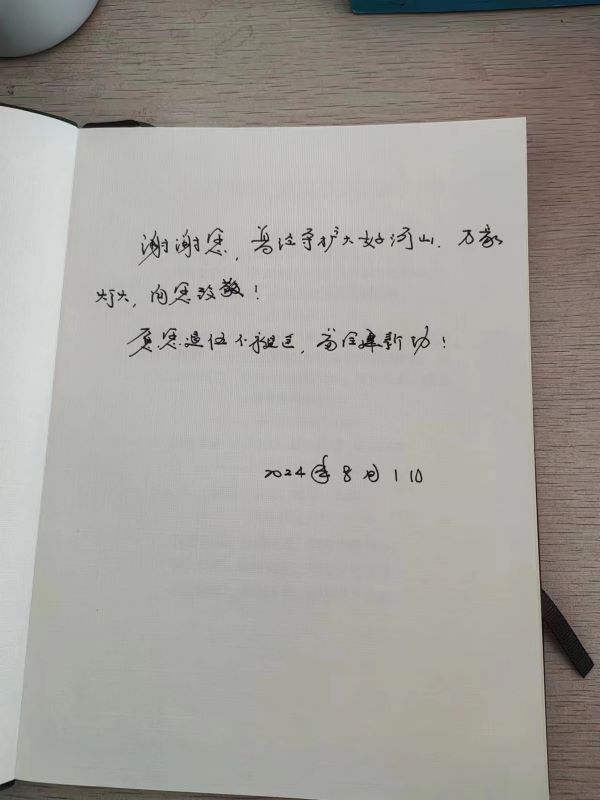 谢谢您,曾经守护大好河山.万家
灯火,向您致敬!
愿您退伍不褪色,当续建新功!
2024年8月1日